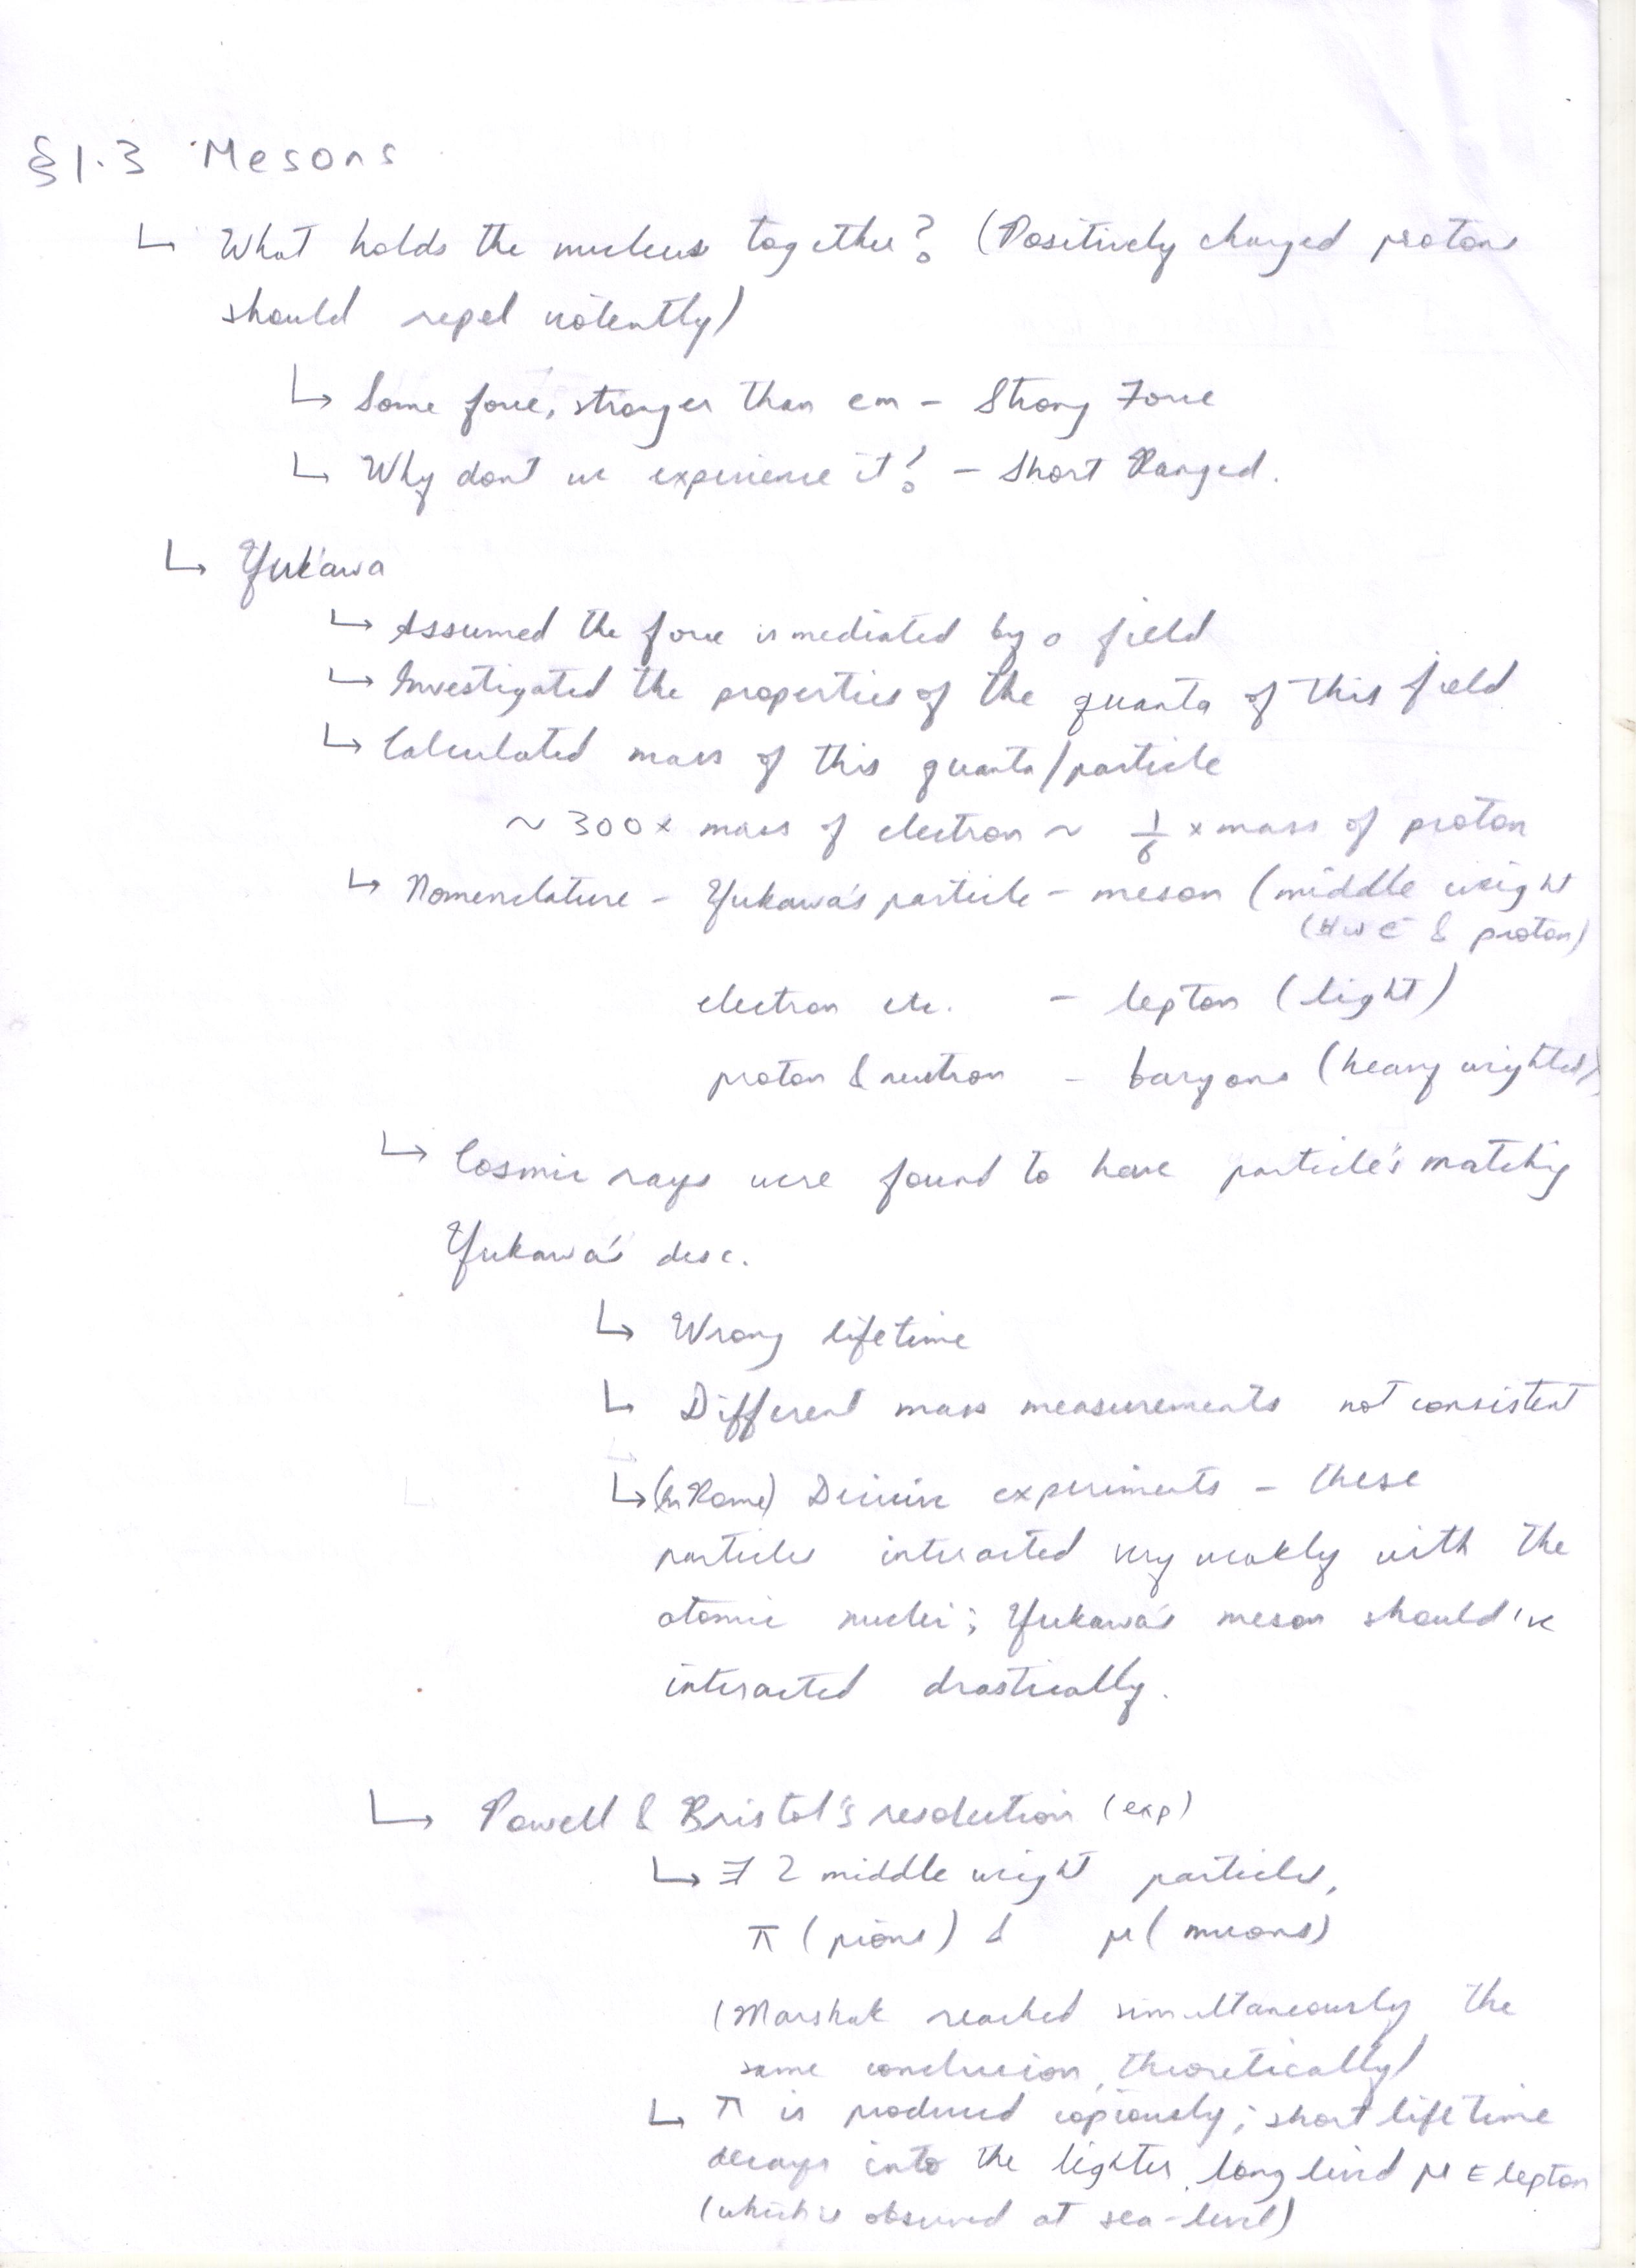 §1.3 Mesons
↳ What holds the nucleus together? (Positively charged protons
should repel violently)
↳ Some force, stronger than em – Strong Force
↳ Why dont we experience it? – Short Ranged.
↳ Yukawa
↳ Assumed the force is mediated by a field
↳ Investigated the properties of the quanta of this field
↳ Calculated mass of this quanta/particle
~ 300 x mass of electron ~ 1/6 x mass of proton
↳ Nomenclature – Yukawa's particle – meson (middle weight
(b/w e⁻ & proton)
electron etc. – lepton (light)
proton & neutron – baryons (heavy weighted)
↳ Cosmic rays were found to have particle's matching
Yukawa's desc.
↳ Wrong lifetime
↳ Different mass measurements not consistent
↳ (In Rome) Decisive experiments – these
particles interacted very weakly with the
atomic nuclei; Yukawa's meson should've
interacted drastically.
↳ Powell & Bristol's resolution (exp)
↳ ∃ 2 middle weight particles,
π (pions) & μ (muons)
(Marshak reached simultaneously the
same conclusion, theoretically)
↳ π is produced copiously; short lifetime
decays into the lighter, long lived μ ∈ lepton
(which is observed at sea-level)